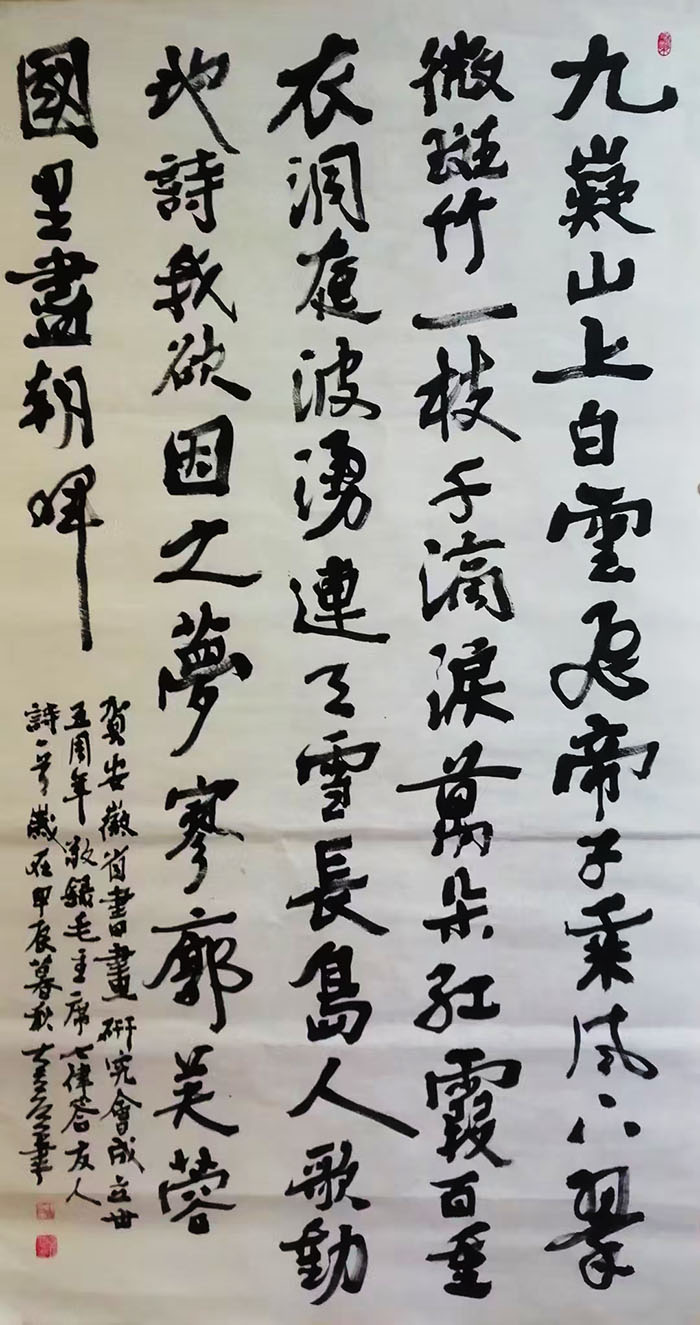 九嶷山上白雲飛帝子乘风下翠
微斑竹一枝千滴淚萬朵紅霞百重
衣洞庭波湧連天雪長島人歌動
地詩我欲因之夢寥廓芙蓉
國里盡朝暉
賀安徽省書畫研究會成立卅
五周年敬錄毛主席七律答友人
詩一首歲在甲辰暮秋